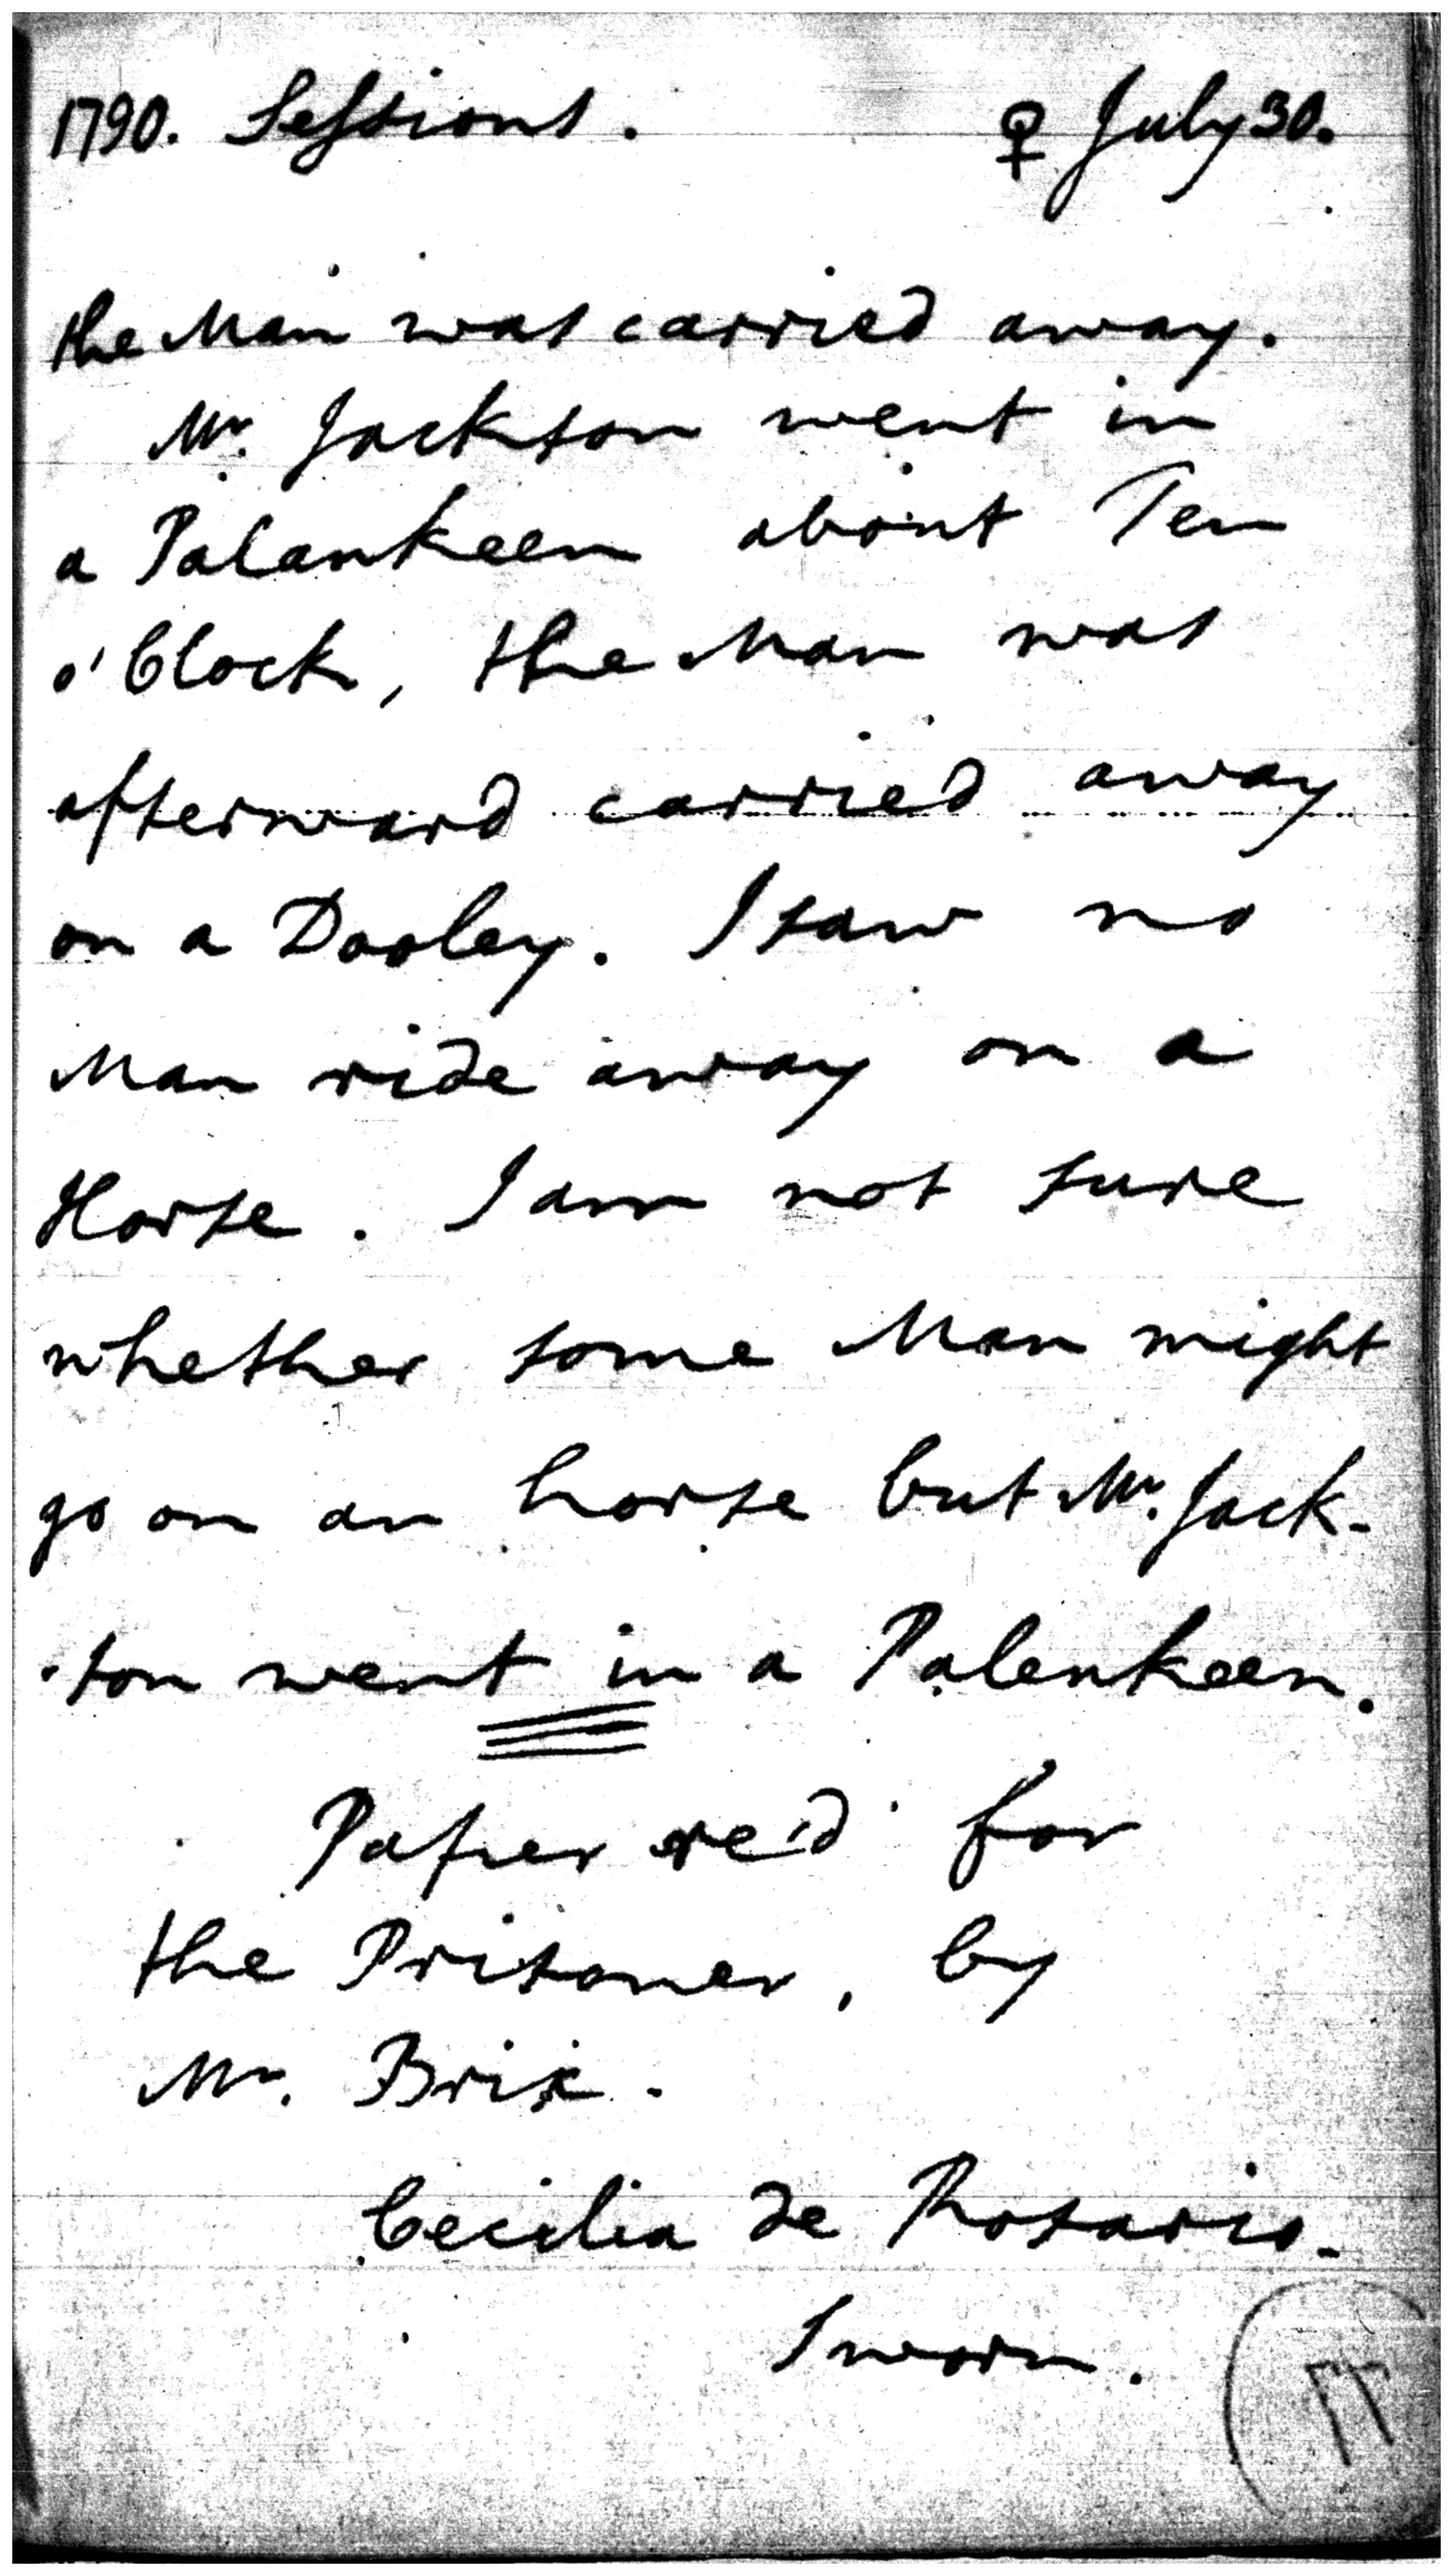 1790. Sessions. ♀ July 30.
the Man was carried away.
Mr. Jackson went in
a Palankeen about Ten
o'Clock, the Man was
afterward carried away
on a Dooley. I saw no
Man ride away on a
Horse. I am not sure
whether some Man might
go on an horse but Mr. Jack-
-son went in a Palenkeen.
Paper re'd for
the Prisoner, by
Mr. Brix.
Cecilia de Rosario.
Sworn.
77